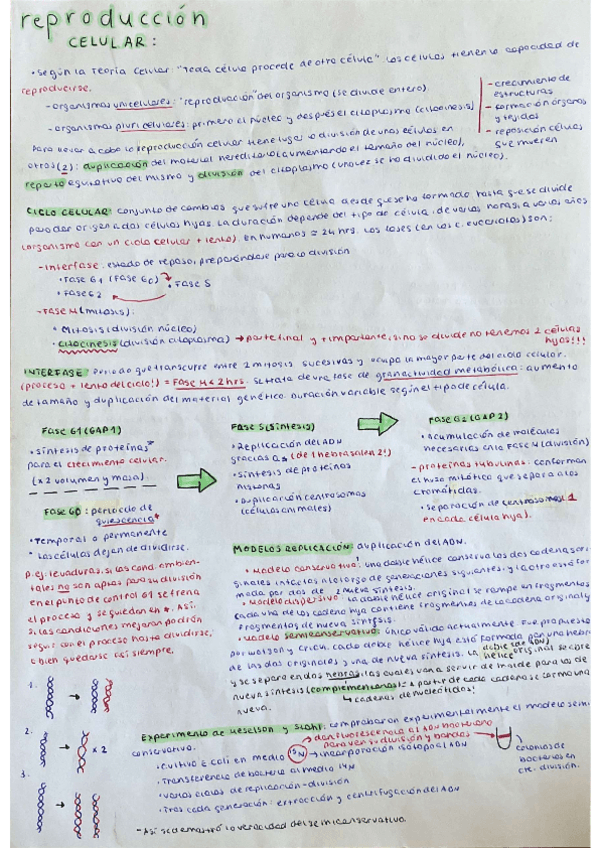 reproducción
CELULAR:
• Según la Teoría Celular: "Toda célula procede de otra célula". Las células tienen la capacidad de
reproducirse.
- organismos unicelulares: "reproducción" del organismo (se divide entero).
- organismos pluricelulares: primero el núcleo y después el citoplasma (citocinesis)
- crecimiento de
estructuras
- formación órganos
y tejidos
- reposición células
que mueren
Para llevar a cabo la reproducción celular tiene lugar la división de unas células en
otras (2): duplicación del material hereditario (aumentando el tamaño del núcleo),
reparto equitativo del mismo y división del citoplasma (una vez se ha dividido el núcleo).
CICLO CELULAR: conjunto de cambios que sufre una célula desde que se ha formado hasta que se divide
para dar origen a dos células hijas. La duración depende del tipo de célula, de varias horas, a varios años
(organismo con un ciclo celular + lento). En humanos ≈ 24 hrs. Las fases (en las c. eucariotas) son:
- Interfase: estado de reposo, preparándose para la división
• Fase G1 (Fase G0)
• Fase S
• Fase G2
- Fase M (mitosis):
• Mitosis (división núcleo)
• Citocinesis (división citoplasma) → parte final y + importante, si no se divide no tenemos 2 células
hijas!!!
INTERFASE: Período que transcurre entre 2 mitosis sucesivas y ocupa la mayor parte del ciclo celular.
(proceso + lento del ciclo!) = Fase M < 2 hrs. Se trata de una fase de gran actividad metabólica: aumento
de tamaño y duplicación del material genético. Duración variable según el tipo de célula.
Fase G1 (GAP 1)
• Síntesis de proteínas*
para el crecimiento celular.
(x2 volumen y masa).
Fase G0: período de
quiescencia*
• Temporal o permanente
• Las células dejan de dividirse.
p.ej. levaduras, si las cond. ambien-
tales no son aptas para su división
en el punto de control G1 se frena
el proceso y se quedan en *. Así,
si las condiciones mejoran podrán
seguir con el proceso hasta dividirse,
o bien quedarse así siempre.
Fase S (Síntesis)
• Replicación del ADN
gracias a (de 1 hebra salen 2!)
• Síntesis de proteínas
histonas
• Duplicación centrosomas
(células animales)
Fase G2 (GAP 2)
• Acumulación de moléculas
necesarias en la Fase M (división)
- proteínas tubulinas: conforman
el huso mitótico que separa a las
cromátidas.
• Separación de centrosomas (1
en cada célula hija).
MODELOS REPLICACIÓN: duplicación del ADN.
• Modelo conservativo: una doble hélice conserva las dos cadenas ori-
ginales intactas a lo largo de generaciones siguientes, y la otra está for-
mada por dos de nueva síntesis.
• Modelo dispersivo: La doble hélice original se rompe en fragmentos
cada una de las cadena hija contiene fragmentos de la cadena original y
fragmentos de nueva síntesis.
• Modelo semiconservativo: único válido actualmente. Fue propuesto
por Watson y Crick. Cada doble hélice hija está formada por una hebra
de las dos originales y una de nueva síntesis. La doble (de ADN)
hélice original se abre
y se separa en dos hebras, las cuales van a servir de molde para las de
nueva síntesis (complementarias). A partir de cada cadena se forma una
nueva.
↳ cadenas de nucleótidos!
1.
2.
x 2
3.
Experimento de Meselson y Stahl: comprobaron experimentalmente el modelo semi-
conservativo.
dan fluorescencia al ADN bacteriano
para ver su división y bandas
• Cultivo E coli en medio 15N → incorporación isótopo al ADN
• Transferencia de bacteria al medio 14N
• Varios ciclos de replicación - división
• Tras cada generación: extracción y centrifugación del ADN
colonias de
bacterias en
división.
- Así se demostró la veracidad del semiconservativo.